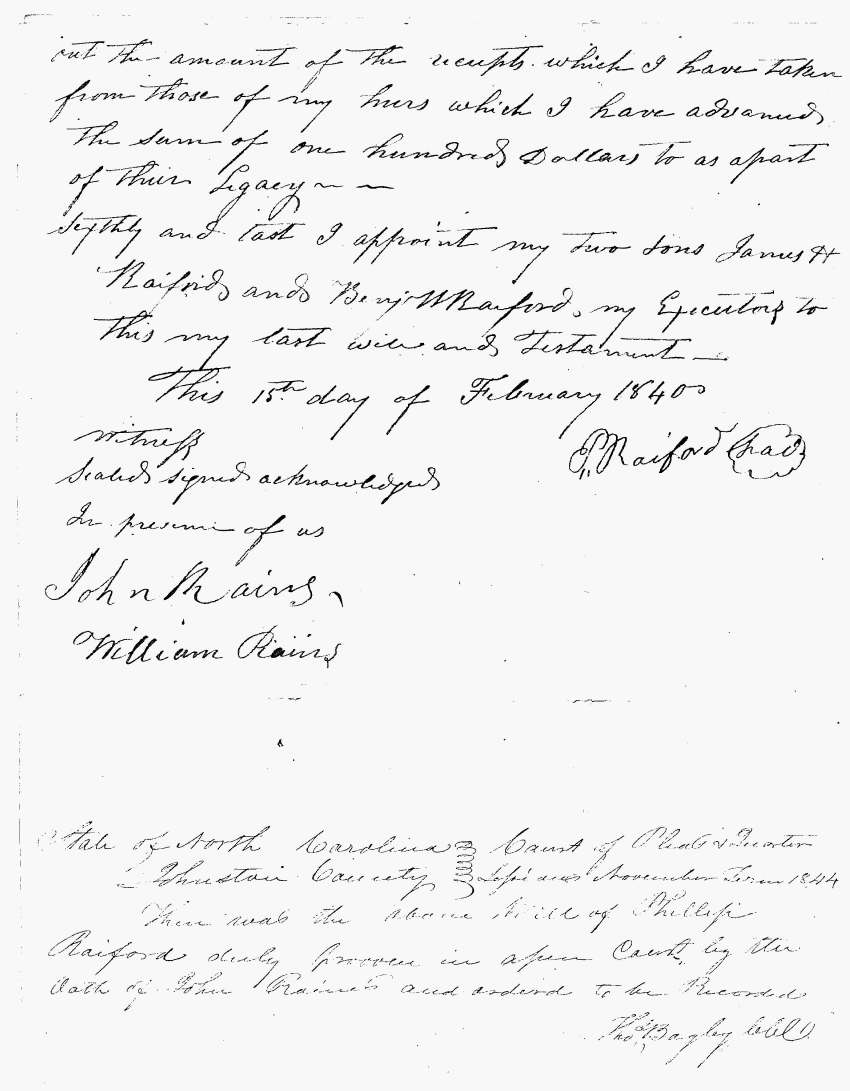 out the amount of the receipts which I have taken
from those of my heirs which I have advanced
the sum of one hundred Dollars to as apart
of their Legacy ~ ~
Sexthly and last I appoint my two sons James H
Raiford and Benj W Raiford, my Executors to
this my last will and Testament —
This 15th day of February 1840
Witness
Sealed signed acknowledged
In presence of us
P. Raiford Seal
John Rains
William Rains
State of North Carolina Court of Pleas & Quarter
Johnston County Sessions November Term 1844
Then was the above Will of Phillip
Raiford duly proven in open Court, by the
Oath of John Raines and ordered to be Recorded
Thos Bagley